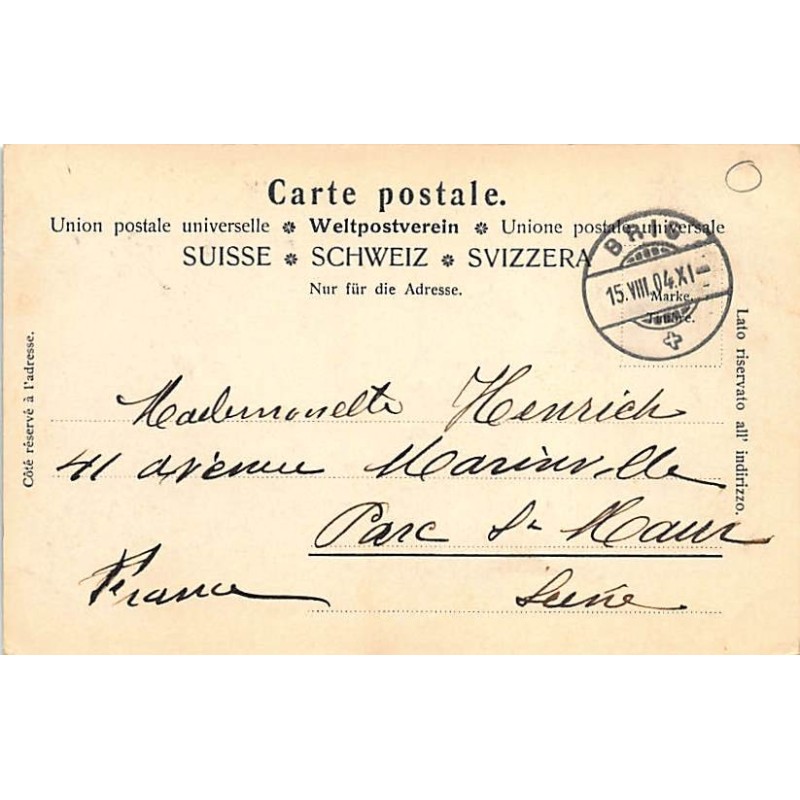 Carte postale.
Union postale universelle * Weltpostverein * Unione postale universale
SUISSE * SCHWEIZ * SVIZZERA
Nur für die Adresse.
BRIG
15.VIII.04.XI-
Marke.
Timbre.
Côté réservé à l'adresse.
Lato riservato all' indirizzo.
Mademoiselle Henrich
41 avenue Marinville
Parc St Maur
France Seine